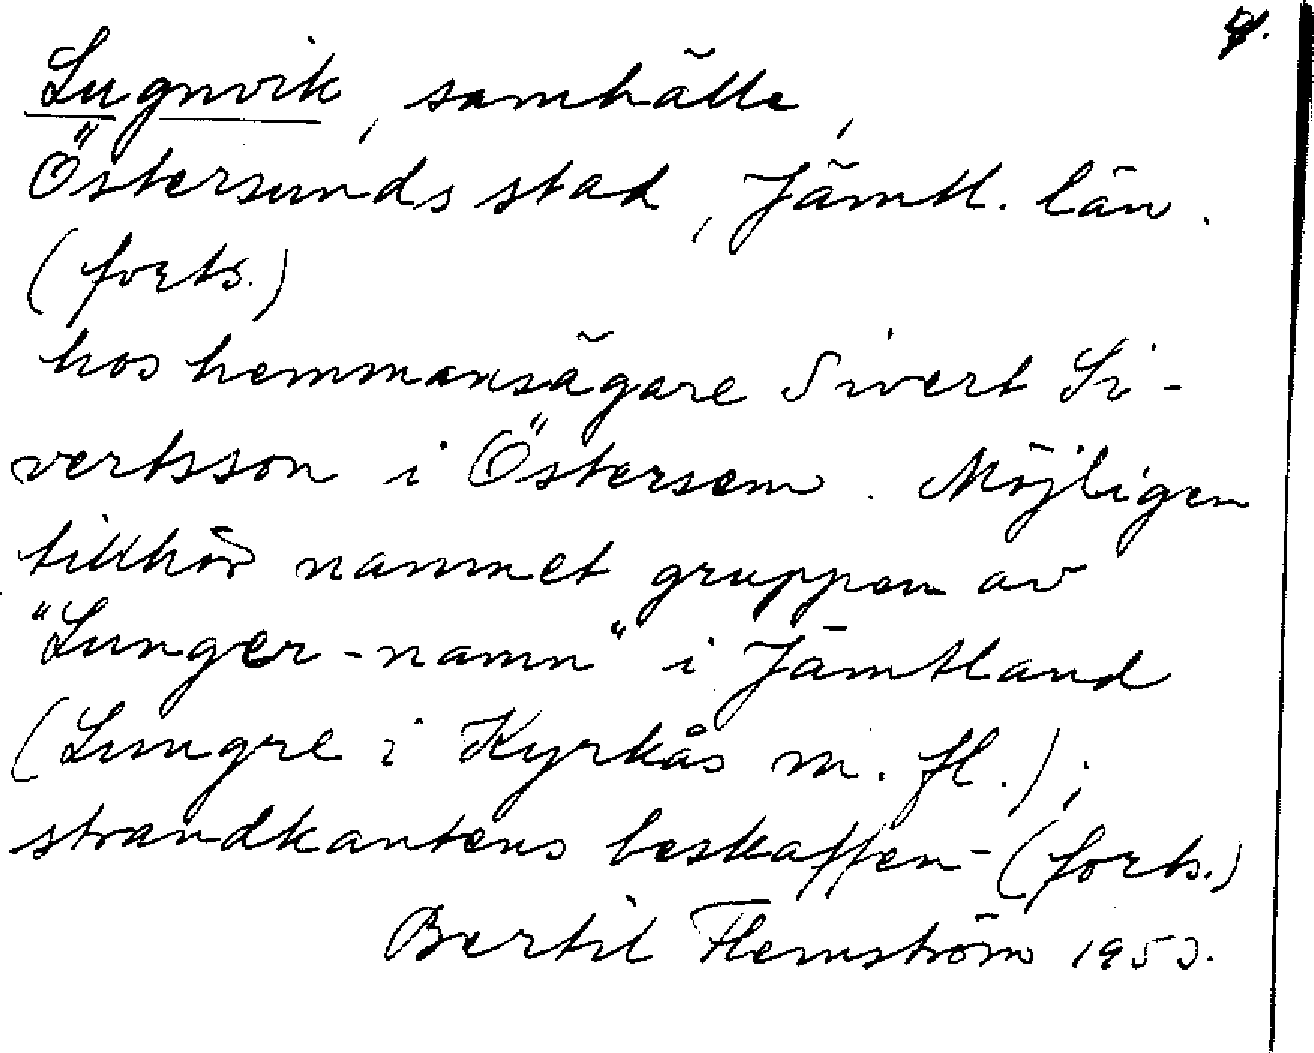 Lugnvik, samhälle,
Östersunds stad, Jämtl. län.
(forts.)
hos hemmansägare Sivert Si-
vertsson i Östersem. Möjligen
tillhör namnet gruppen av
"Lunger-namn" i Jämtland
(Lungre i Kyrkås m. fl.);
strandkantens beskaffen- (forts.)
Bertil Flemström 1953.